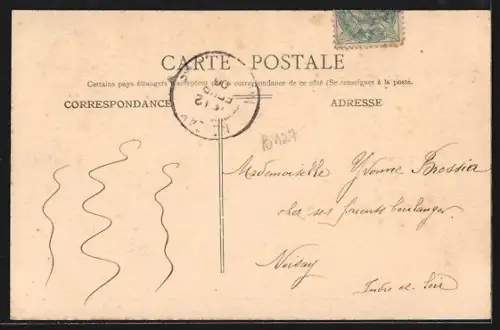 CARTE POSTALE
Certains pays étrangers n'acceptent pas la correspondance de ce côté (Se renseigner à la poste.
CORRESPONDANCE
ADRESSE
B127
Mademoiselle Yvonne Brossia
chez ses parents boulanger
Noisay
Indre et Loir